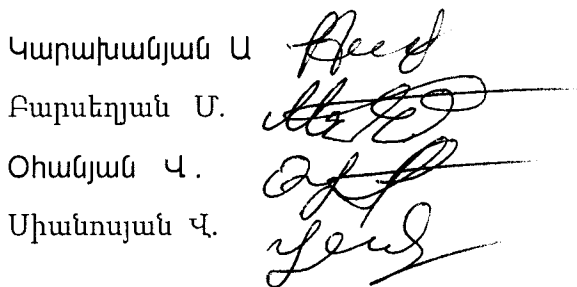 Կարախանյան Ա
Բարսեղյան Մ.
Օհանյան Վ.
Սիանոսյան Վ.